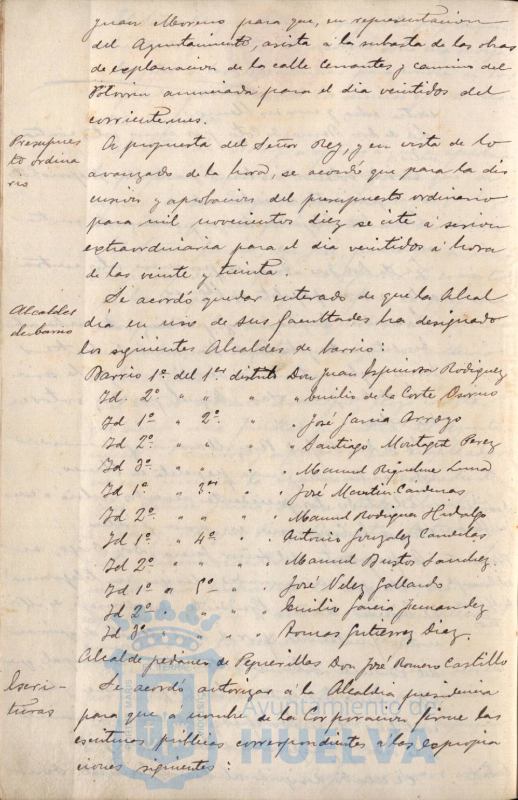 Juan Moreno para que, en representacion
del Ayuntamiento, asista á la subasta de las obras
de explanacion de la calle Cervantes y camino del
Polvorin anunciada para el dia veintidos del
corriente mes.
Presupues
to ordina
rio
A propuesta del Señor Rey, y en vista de lo
avanzado de la hora, se acordó que para la dis
cusion y aprobacion del presupuesto ordinario
para mil novecientos diez se cite á sesion
extraordinaria para el dia veintidos á hora
de las veinte y treinta.
Alcaldes
de barrio
Se acordó quedar enterado de que la Alcal
dia en uso de sus facultades ha designado
los siguientes Alcaldes de barrio:
Barrio 1º del 1er distrito Don Juan Espinosa Rodriguez
Id 2º " " " Emilio de la Corte Osorno
Id 1º " 2º " José Garcia Arroyo
Id 2º " " " Santiago Perez
Id 3º " " " Manuel Riquelme Luna
Id 1º " 3er " José Martin Cárdenas
Id 2º " " " Manuel Rodriguez Hidalgo
Id 1º " 4º " Antonio Gonzalez
Id 2º " " " Manuel Bustos Sanchez.
Id 1º " 5º " José Velez Gallardo
Id 2º " " " Emilio Garcia Fernandez
Id 3º " " " Tomas Gutierrez Diaz.
Alcalde pedaneo de Peguerillas Don José Romero Castillo
Escri-
turas
Se acordó autorizar á la Alcaldia presidencia
para que á nombre de la Corporacion firme las
escrituras públicas correspondientes á las expropia
ciones siguientes:
Ayuntamiento de
HUELVA